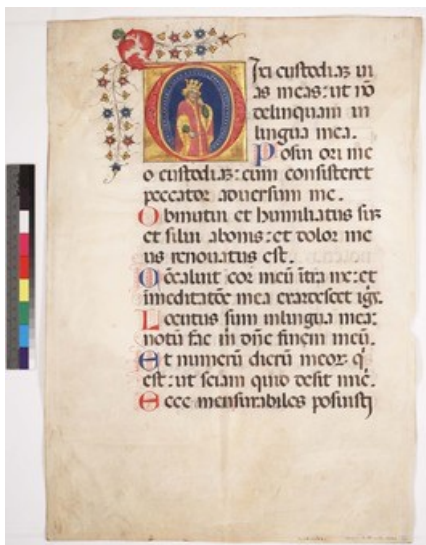 Dixi custodiaʒ ui
as meas: ut nō
delinquam in
lingua mea.
Posui ori me
o custodiaʒ: cum consisteret
peccator aduersum me.
Obmutui et humiliatus suʒ
et silui abonis: et dolor me
us renouatus est.
Cōcaluit cor meū ītra me: et
īmeditatōe mea exardescet igī.
Locutus sum inlingua mea:
notū fac m̄ dn̄e finem meū.
Et numerū dierū meoꝝ q̄
est: ut sciam quid desit m̄c.
Ecce mensurabiles posuisti